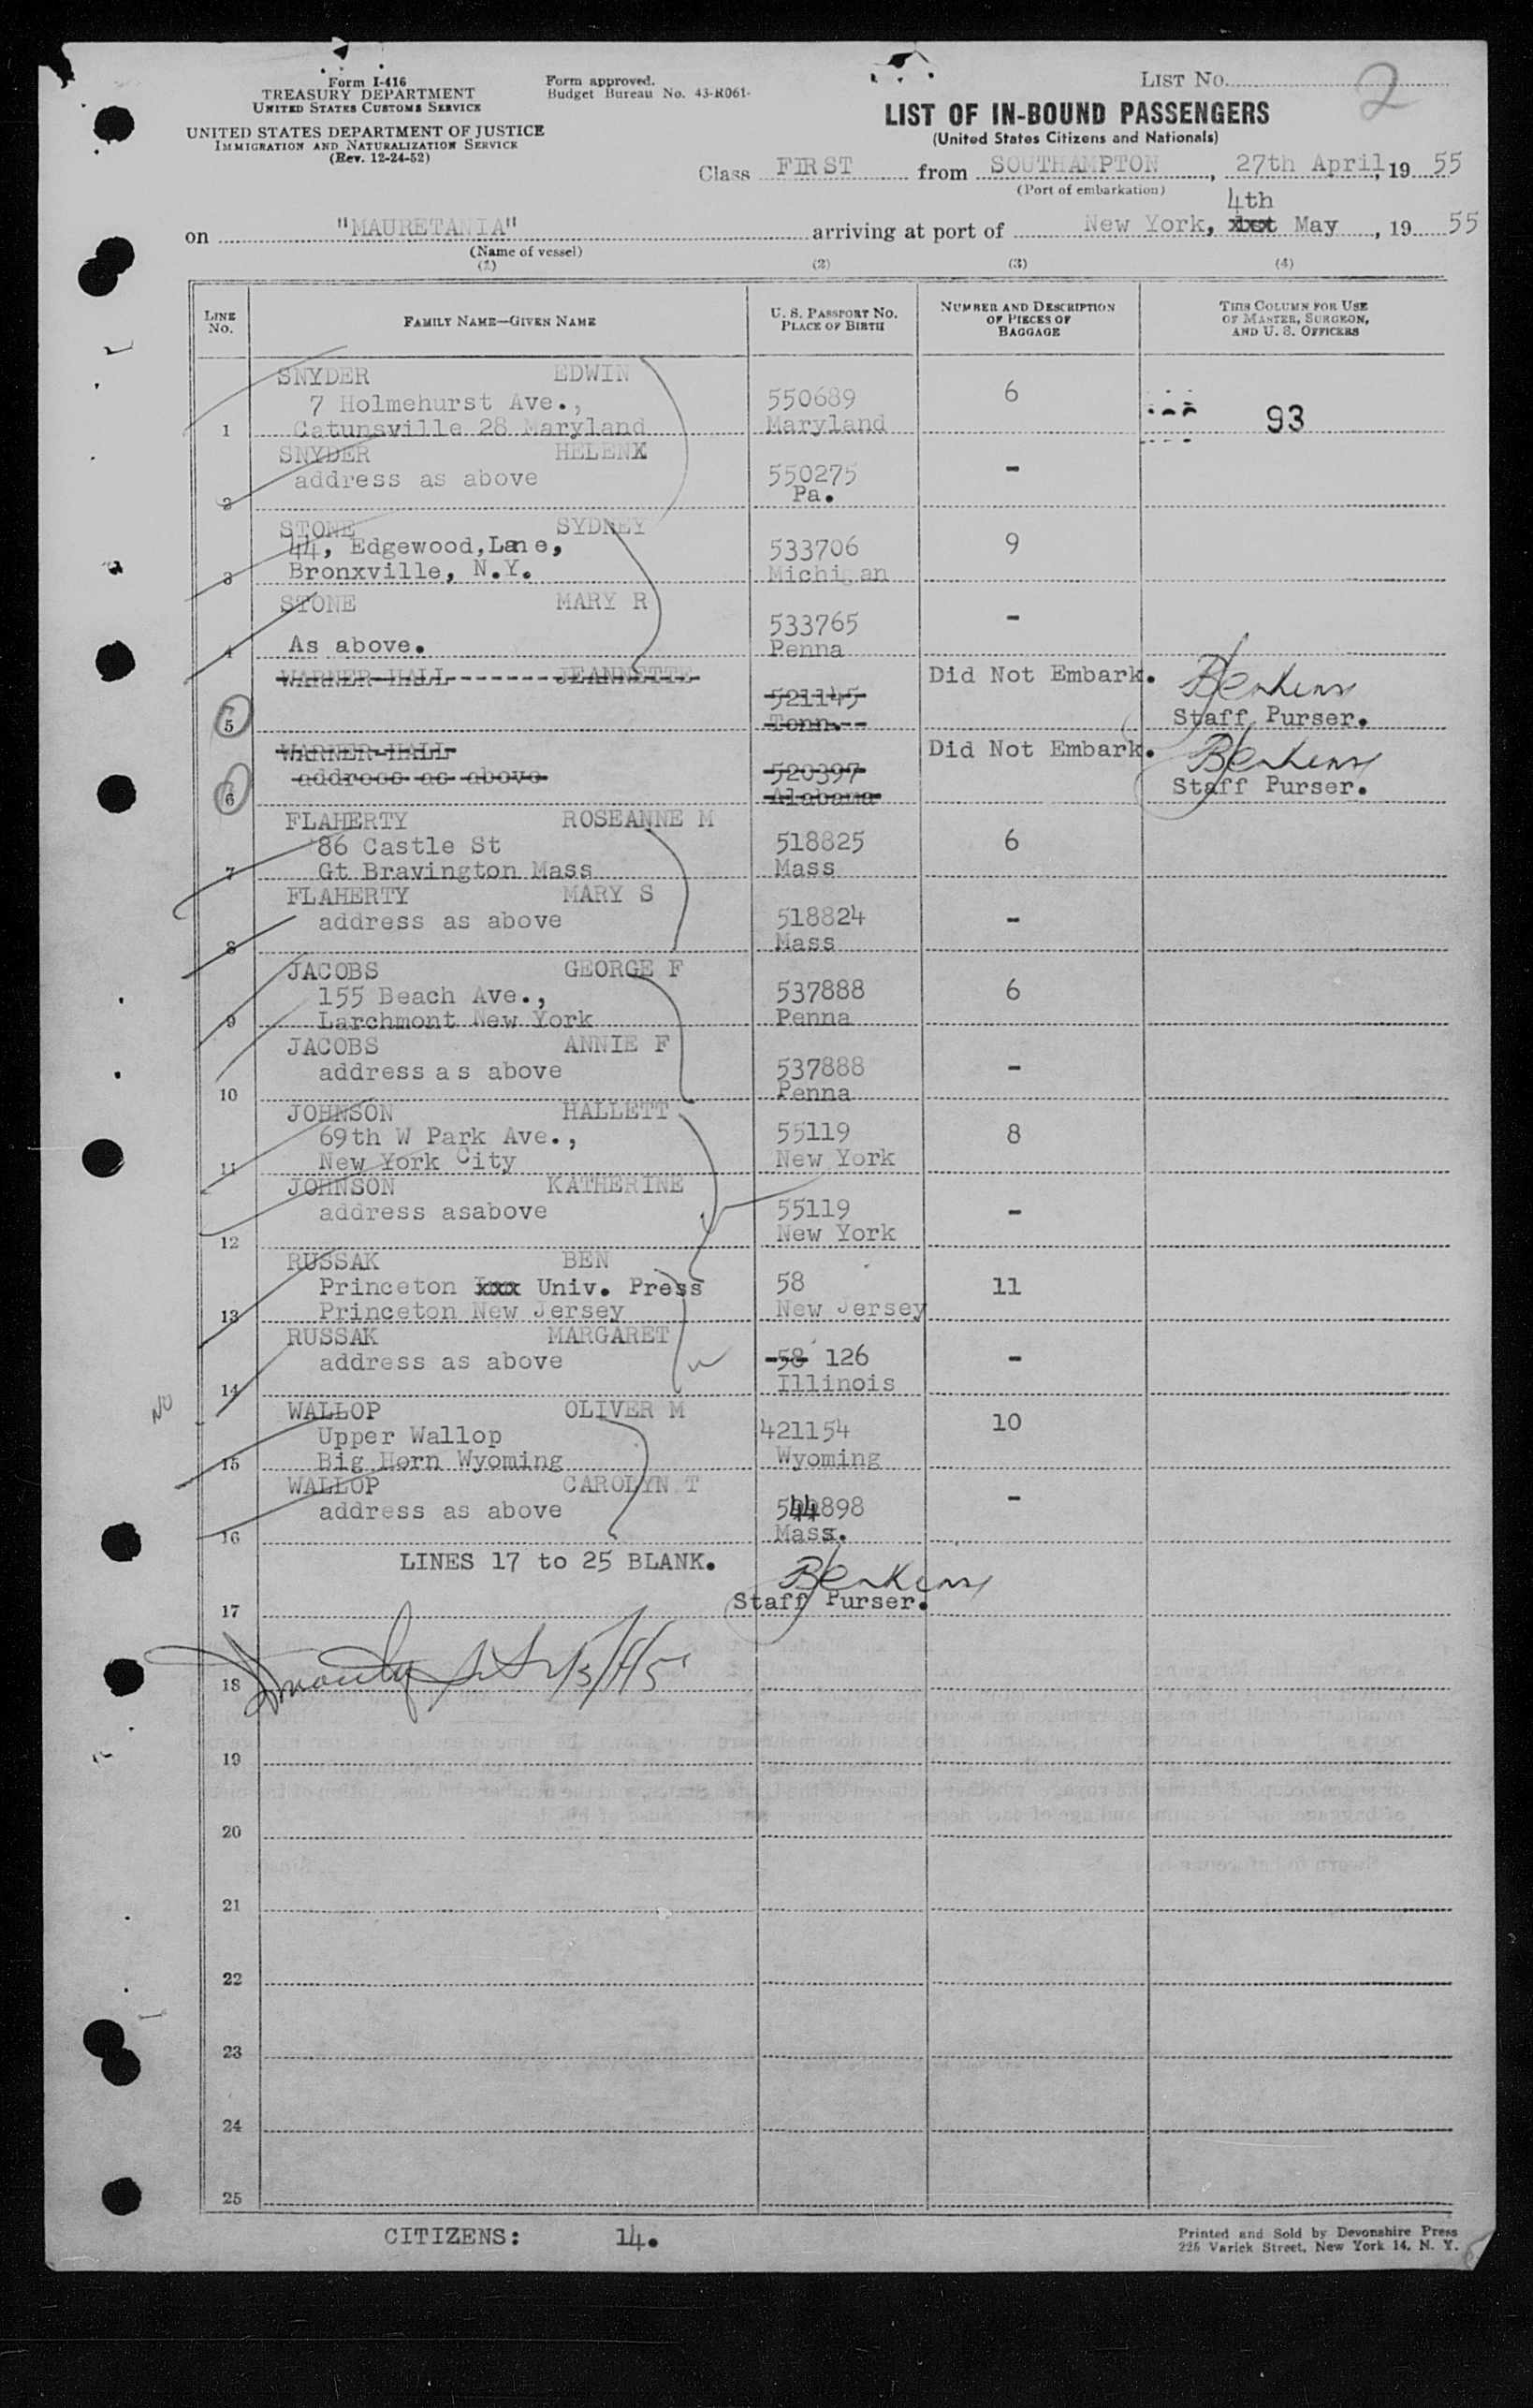 Form I-416
TREASURY DEPARTMENT
UNITED STATES CUSTOMS SERVICE
UNITED STATES DEPARTMENT OF JUSTICE
IMMIGRATION AND NATURALIZATION SERVICE
(Rev. 12-24-52)
Form approved.
Budget Bureau No. 43-R061-
LIST NO. 2
LIST OF IN-BOUND PASSENGERS
(United States Citizens and Nationals)
Class FIRST from SOUTHAMPTON, 27th April, 19 55
(Port of embarkation)
4th
on "MAURETANIA" arriving at port of New York, xxx May, 19 55
(Name of vessel)
(1) (2) (3) (4)
LINE NO.
FAMILY NAME—GIVEN NAME
U. S. PASSPORT NO.
PLACE OF BIRTH
NUMBER AND DESCRIPTION
OF PIECES OF
BAGGAGE
THIS COLUMN FOR USE
OF MASTER, SURGEON,
AND U. S. OFFICERS
SNYDER EDWIN
7 Holmehurst Ave., 550689 6
1 Catunsville 28 Maryland Maryland 93
SNYDER HELENX
address as above 550275 -
2 Pa.
STONE SYDNEY
44, Edgewood,Lane, 533706 9
3 Bronxville, N.Y. Michigan
STONE MARY R
533765 -
4 As above. Penna
WARNER-HALL-------JEANNETTE Did Not Embark.
521145
5 Tenn.-- Staff Purser.
WARNER-HALL Did Not Embark.
address as above 520397
6 Alabama Staff Purser.
FLAHERTY ROSEANNE M
86 Castle St 518825 6
7 Gt Bravington Mass Mass
FLAHERTY MARY S
address as above 518824 -
8 Mass
JACOBS GEORGE F
155 Beach Ave., 537888 6
9 Larchmont New York Penna
JACOBS ANNIE F
address as above 537888 -
10 Penna
JOHNSON HALLETT
69th W Park Ave., 55119 8
11 New York City New York
JOHNSON KATHERINE
address asabove 55119 -
12 New York
RUSSAK BEN
Princeton xxx Univ. Press 58 11
13 Princeton New Jersey New Jersey
RUSSAK MARGARET
address as above 58 126 -
14 Illinois
NO
WALLOP OLIVER M
Upper Wallop 421154 10
15 Big Horn Wyoming Wyoming
WALLOP CAROLYN T
address as above 544898 -
16 Mass.
LINES 17 to 25 BLANK.
17 Staff Purser.
18
19
20
21
22
23
24
25
CITIZENS: 14.
Printed and Sold by Devonshire Press
225 Varick Street, New York 14, N. Y.